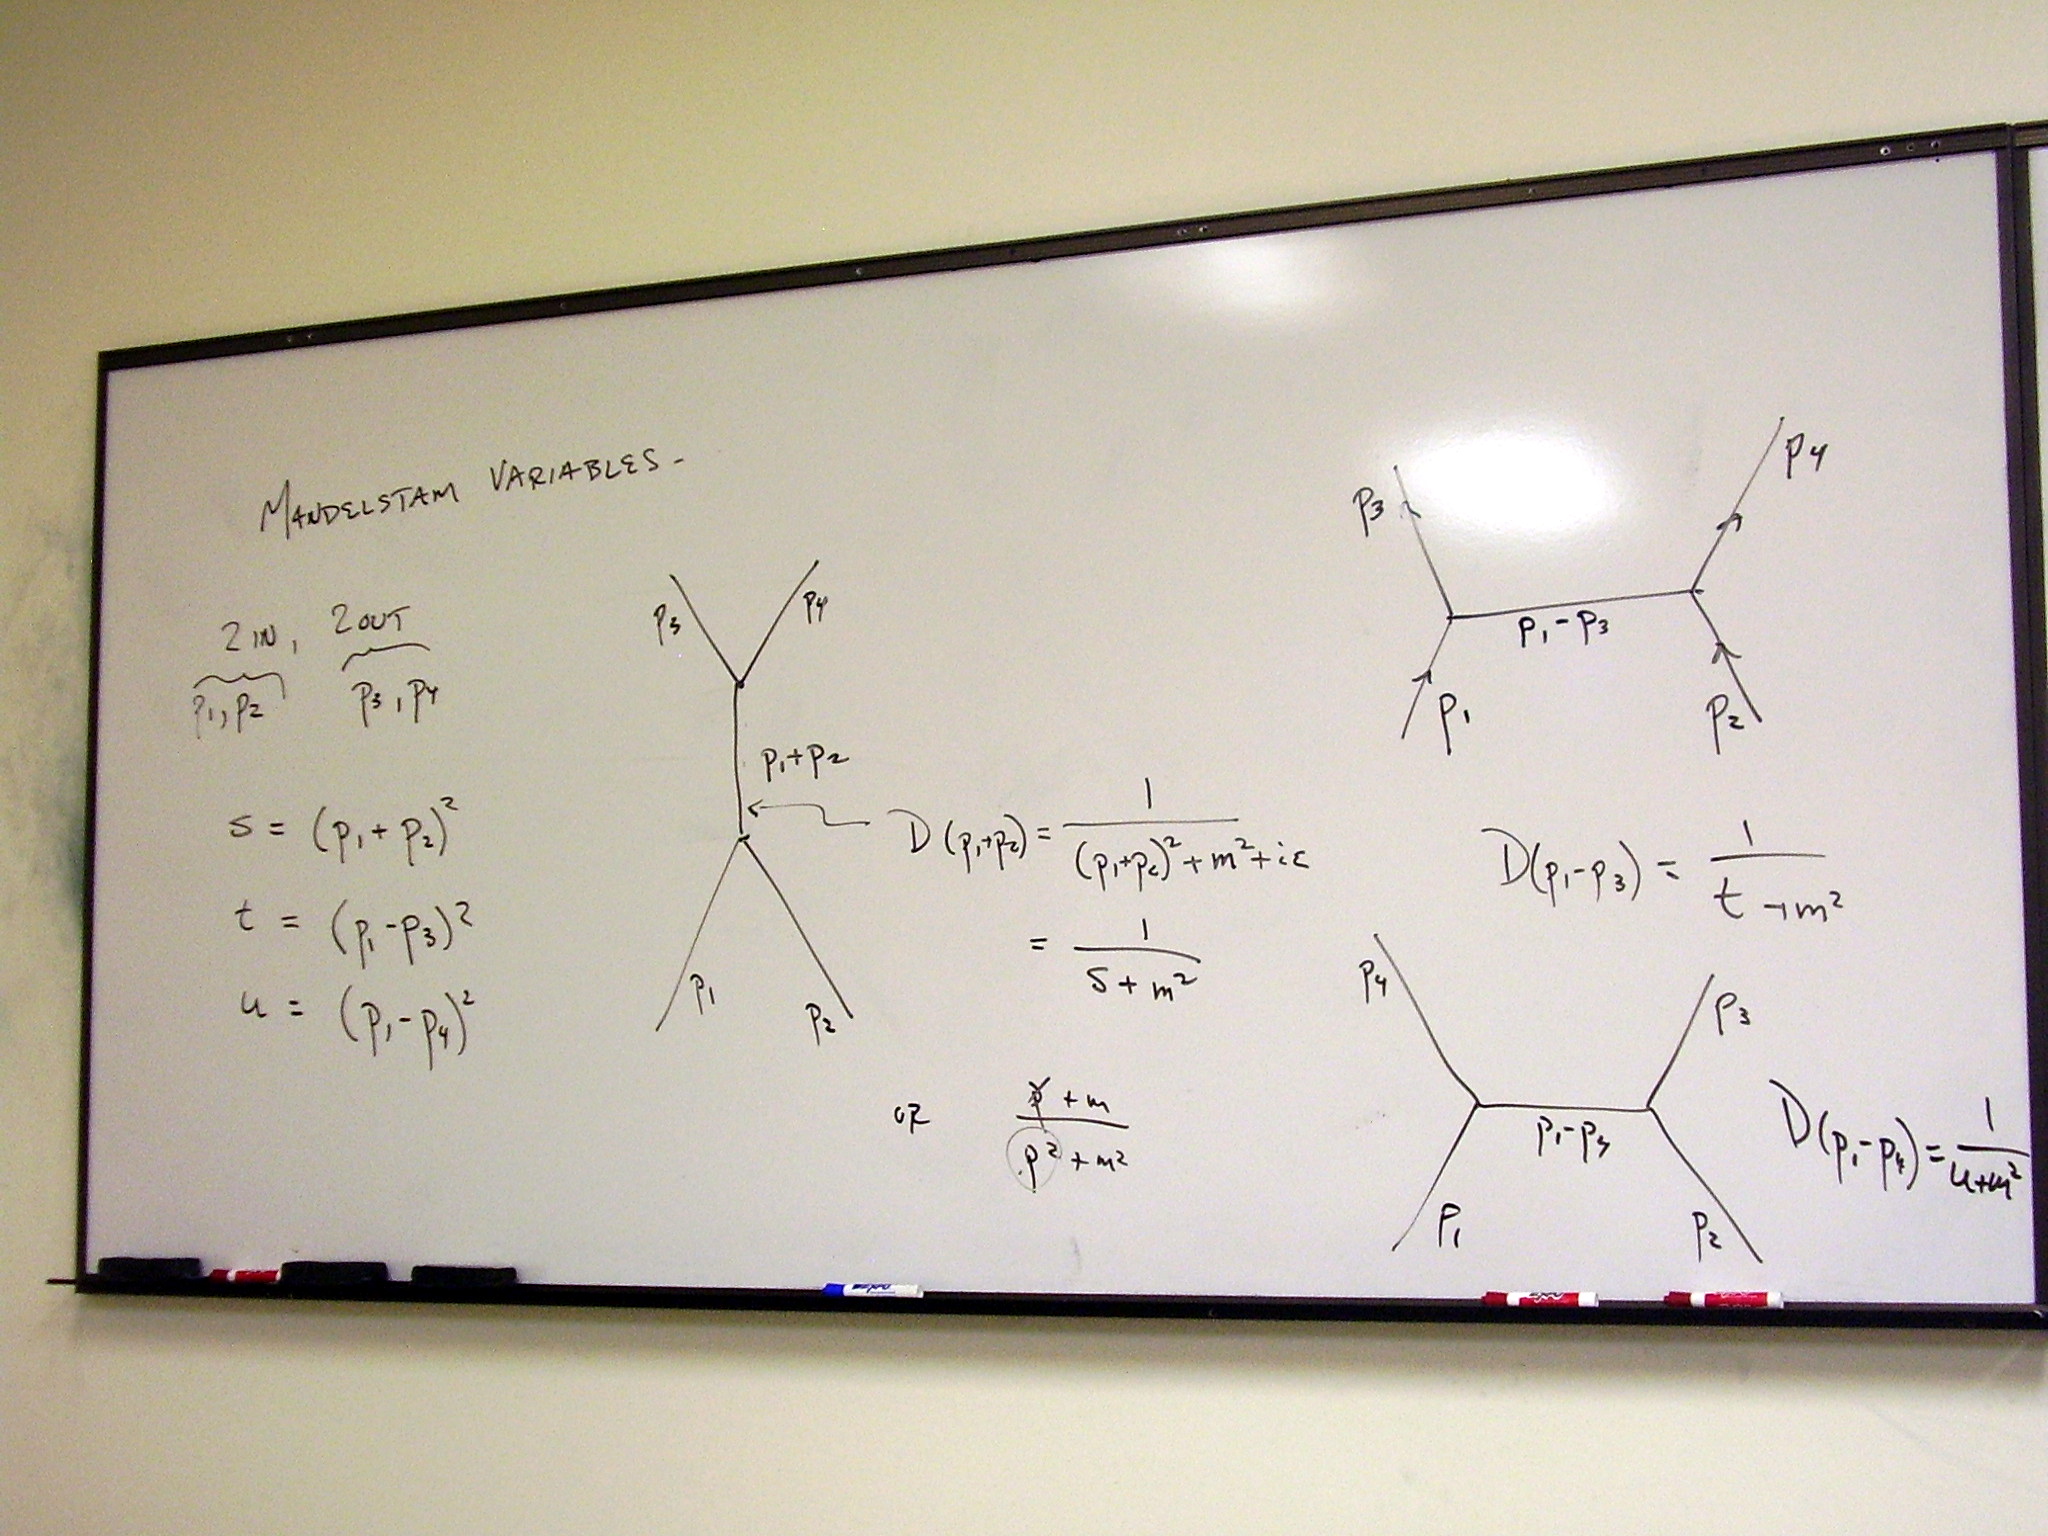 MANDELSTAM VARIABLES-
2 IN, 2 OUT
p₁, p₂ p₃, p₄
s = (p₁ + p₂)²
t = (p₁ - p₃)²
u = (p₁ - p₄)²
p₃ p₄
p₁+p₂
p₁ p₂
D(p₁+p₂) = 1/((p₁+p₂)² + m² + iε)
= 1/(s + m²)
OR (p̸ + m)/(p² + m²)
p₃ p₄
p₁ - p₃
p₁ p₂
D(p₁-p₃) = 1/(t + m²)
p₄ p₃
p₁ - p₄
p₁ p₂
D(p₁-p₄) = 1/(u+m²)